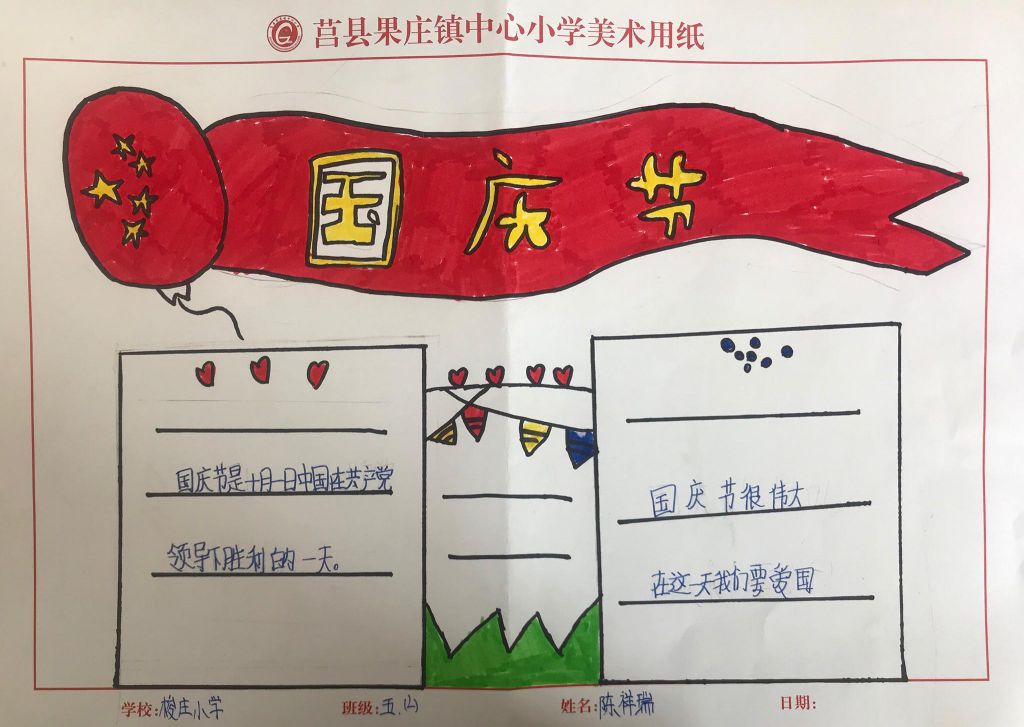 莒县果庄镇中心小学美术用纸
国庆节
国庆节是十月一日中国在共产党
领导下胜利的一天。
国庆节很伟大
在这一天我们要爱国
学校:梭庄小学 班级:五.(二) 姓名:陈祥瑞 日期: